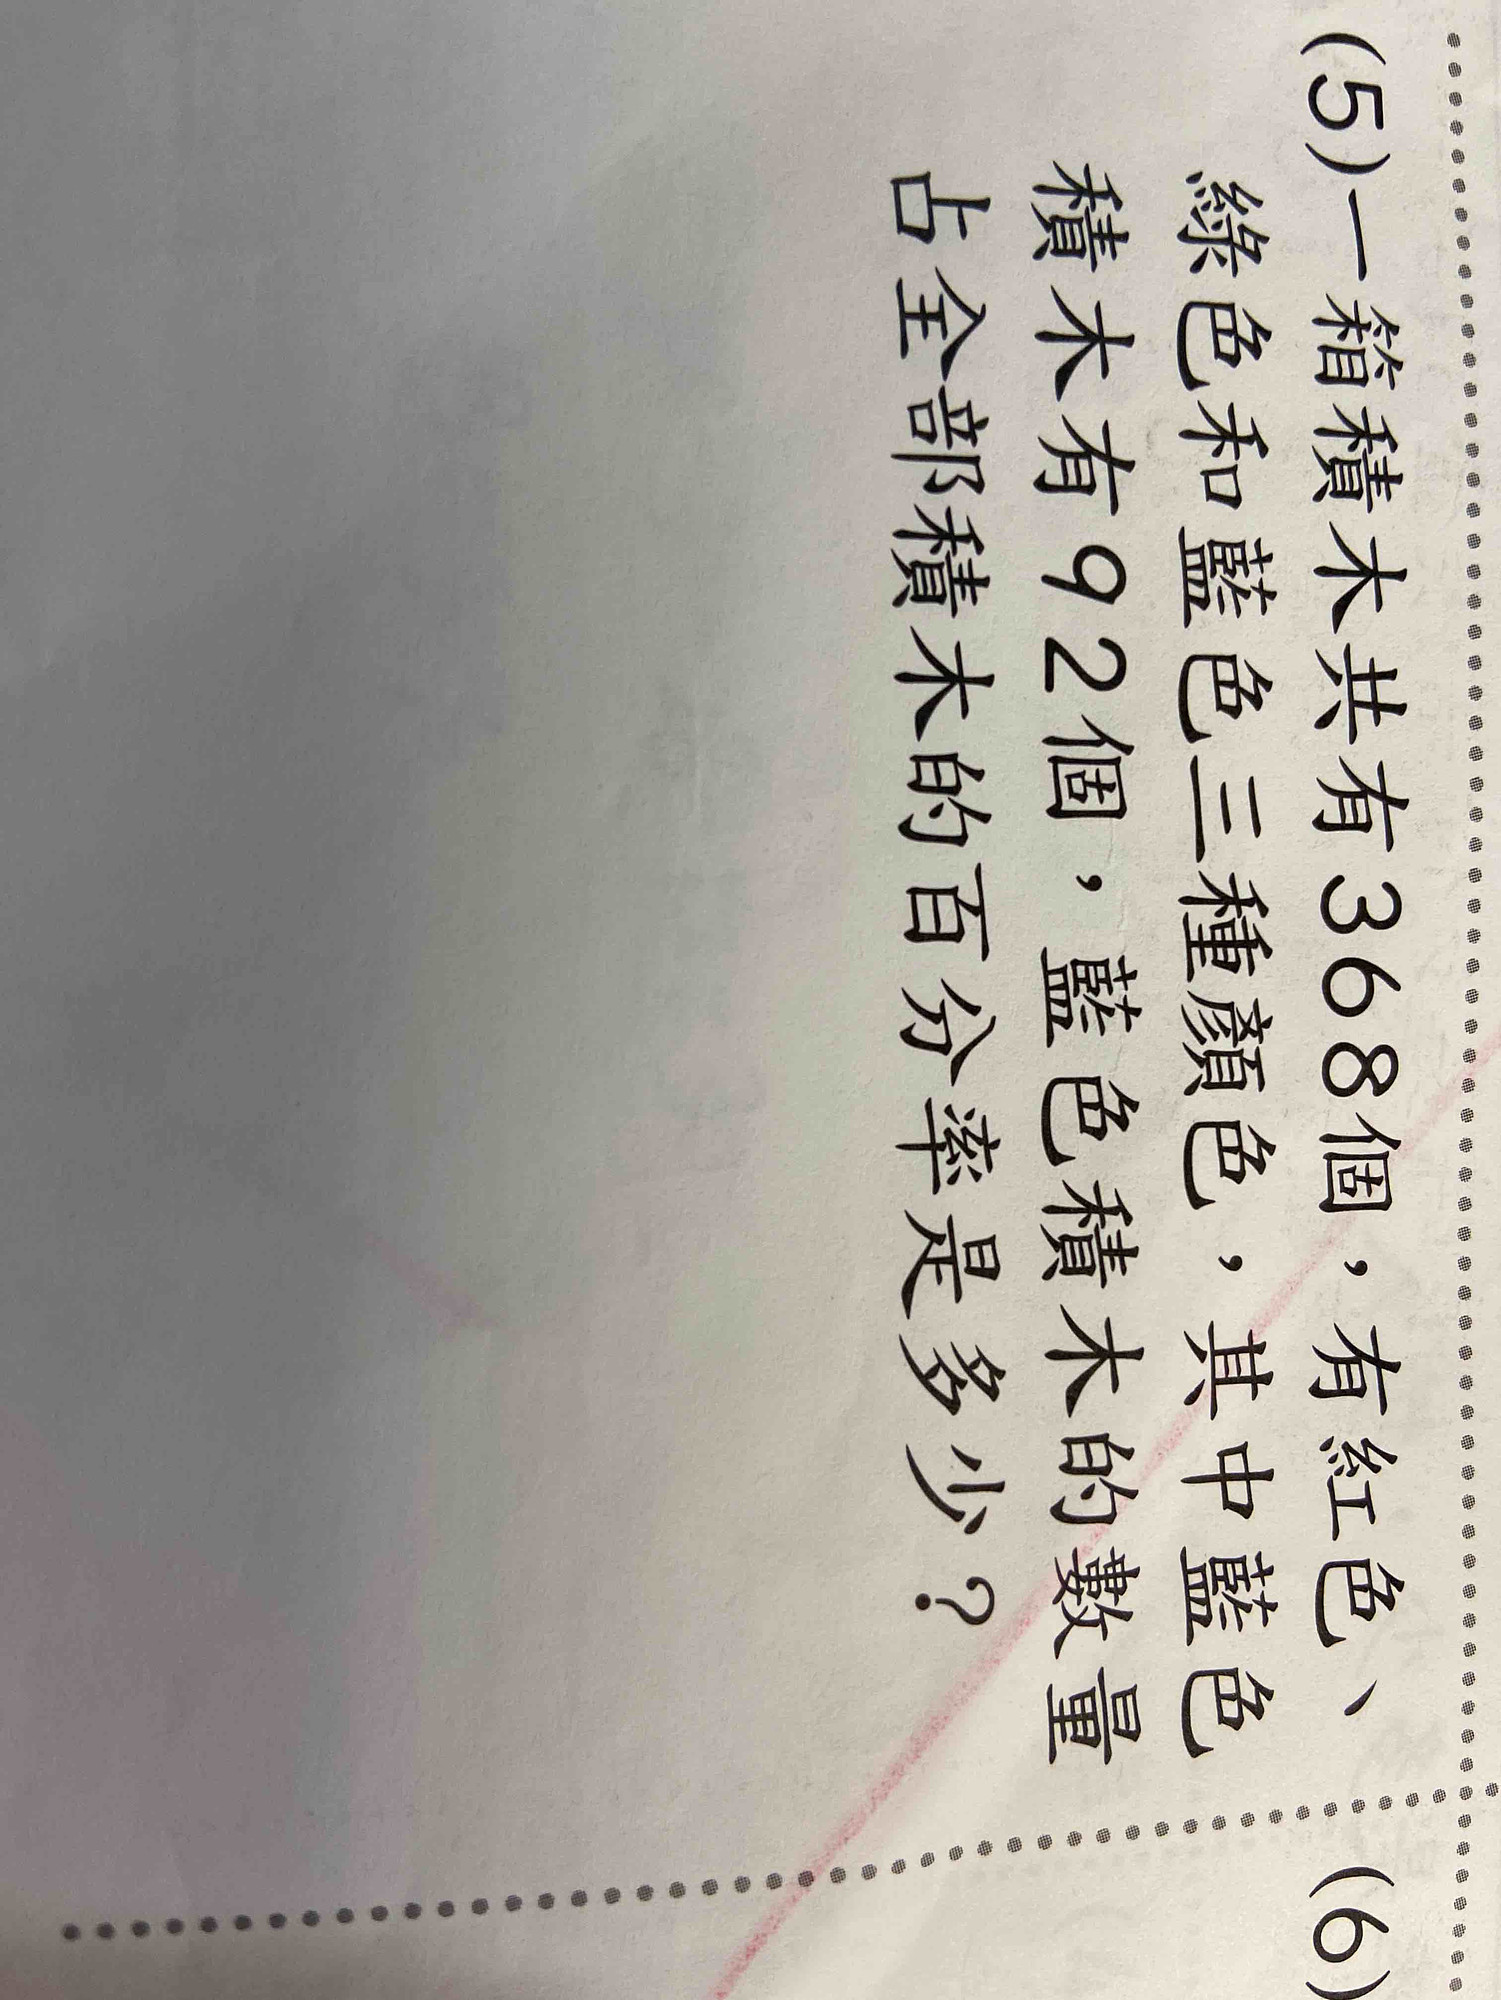 (5)一箱積木共有368個，有紅色、
綠色和藍色三種顏色，其中藍色
積木有92個，藍色積木的數量
占全部積木的百分率是多少？
(6)